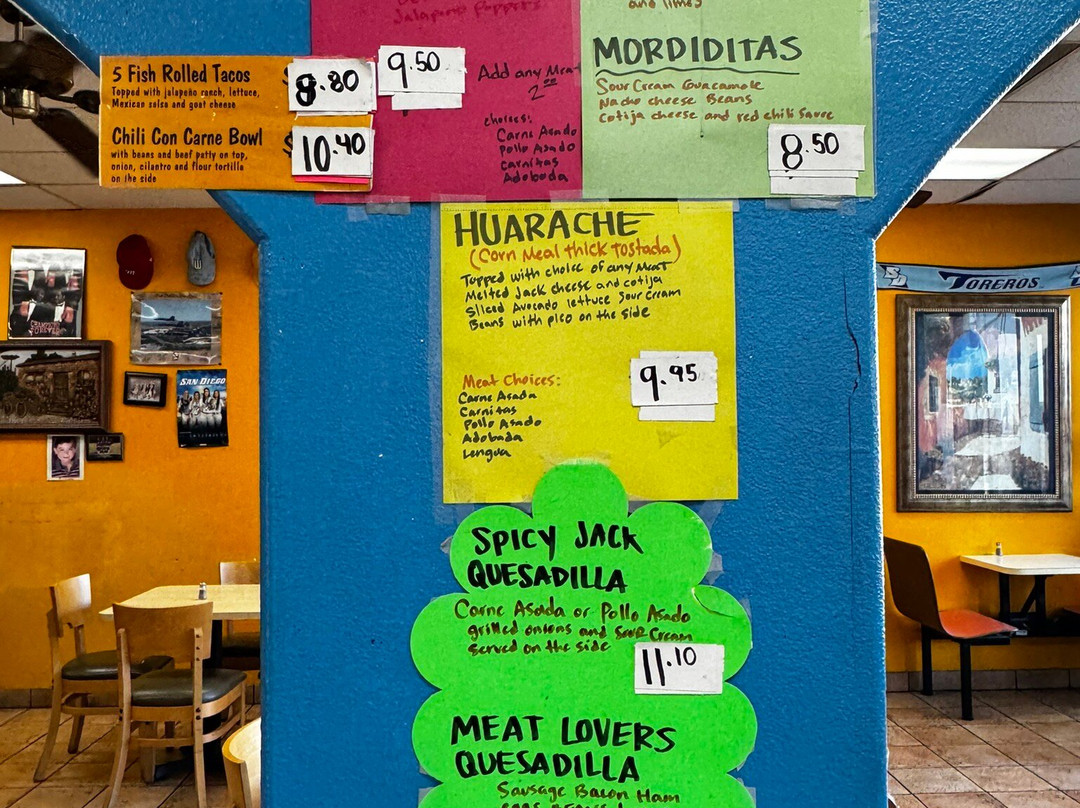 5 Fish Rolled Tacos
Topped with jalapeño ranch, lettuce,
Mexican salsa and goat cheese
$
8.80
Chili Con Carne Bowl
with beans and beef patty on top,
onion, cilantro and flour tortilla
on the side
$
10.40
Jalapeno Poppers
9.50
Add any Meat
2.00
choices:
Carne Asado
Pollo Asado
Carnitas
Adobada
and limes
MORDIDITAS
Sour Cream Guacamole
Nacho cheese Beans
Cotija cheese and red chili sauce
8.50
HUARACHE
(Corn Meal thick Tostada)
Topped with choice of any Meat
Melted Jack cheese and cotija
Sliced Avocado lettuce Sour Cream
Beans with pico on the side
9.95
Meat Choices:
Carne Asada
Carnitas
Pollo Asado
Adobada
Lengua
SPICY JACK
QUESADILLA
Carne Asada or Pollo Asado
grilled onions and Sour Cream
served on the side
11.10
MEAT LOVERS
QUESADILLA
Sausage Bacon Ham
SAN DIEGO
SD TOREROS